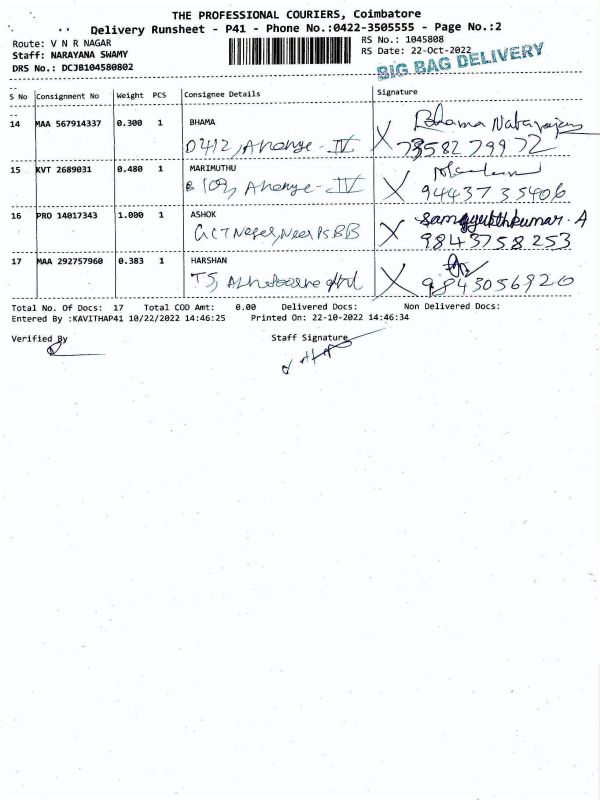 THE PROFESSIONAL COURIERS, Coimbatore
Delivery Runsheet - P41 - Phone No.:0422-3505555 - Page No.:2
Route: V N R NAGAR
RS No.: 1045808
Staff: NARAYANA SWAMY
RS Date: 22-Oct-2022
DRS No.: DCJB104580802
BIG BAG DELIVERY
S No Consignment No Weight PCS Consignee Details Signature
14 MAA 567914337 0.300 1 BHAMA Bhama
D412, IV 7358279972
15 KVT 2689031 0.480 1 MARIMUTHU
B 109, IV 9443735406
16 PRO 14017343 1.000 1 ASHOK A
Near PSBB 9843758253
17 MAA 292757960 0.383 1 HARSHAN
T5, 9843056920
Total No. Of Docs: 17 Total COD Amt: 0.00 Delivered Docs: Non Delivered Docs:
Entered By :KAVITHAP41 10/22/2022 14:46:25 Printed On: 22-10-2022 14:46:34
Verified By Staff Signature